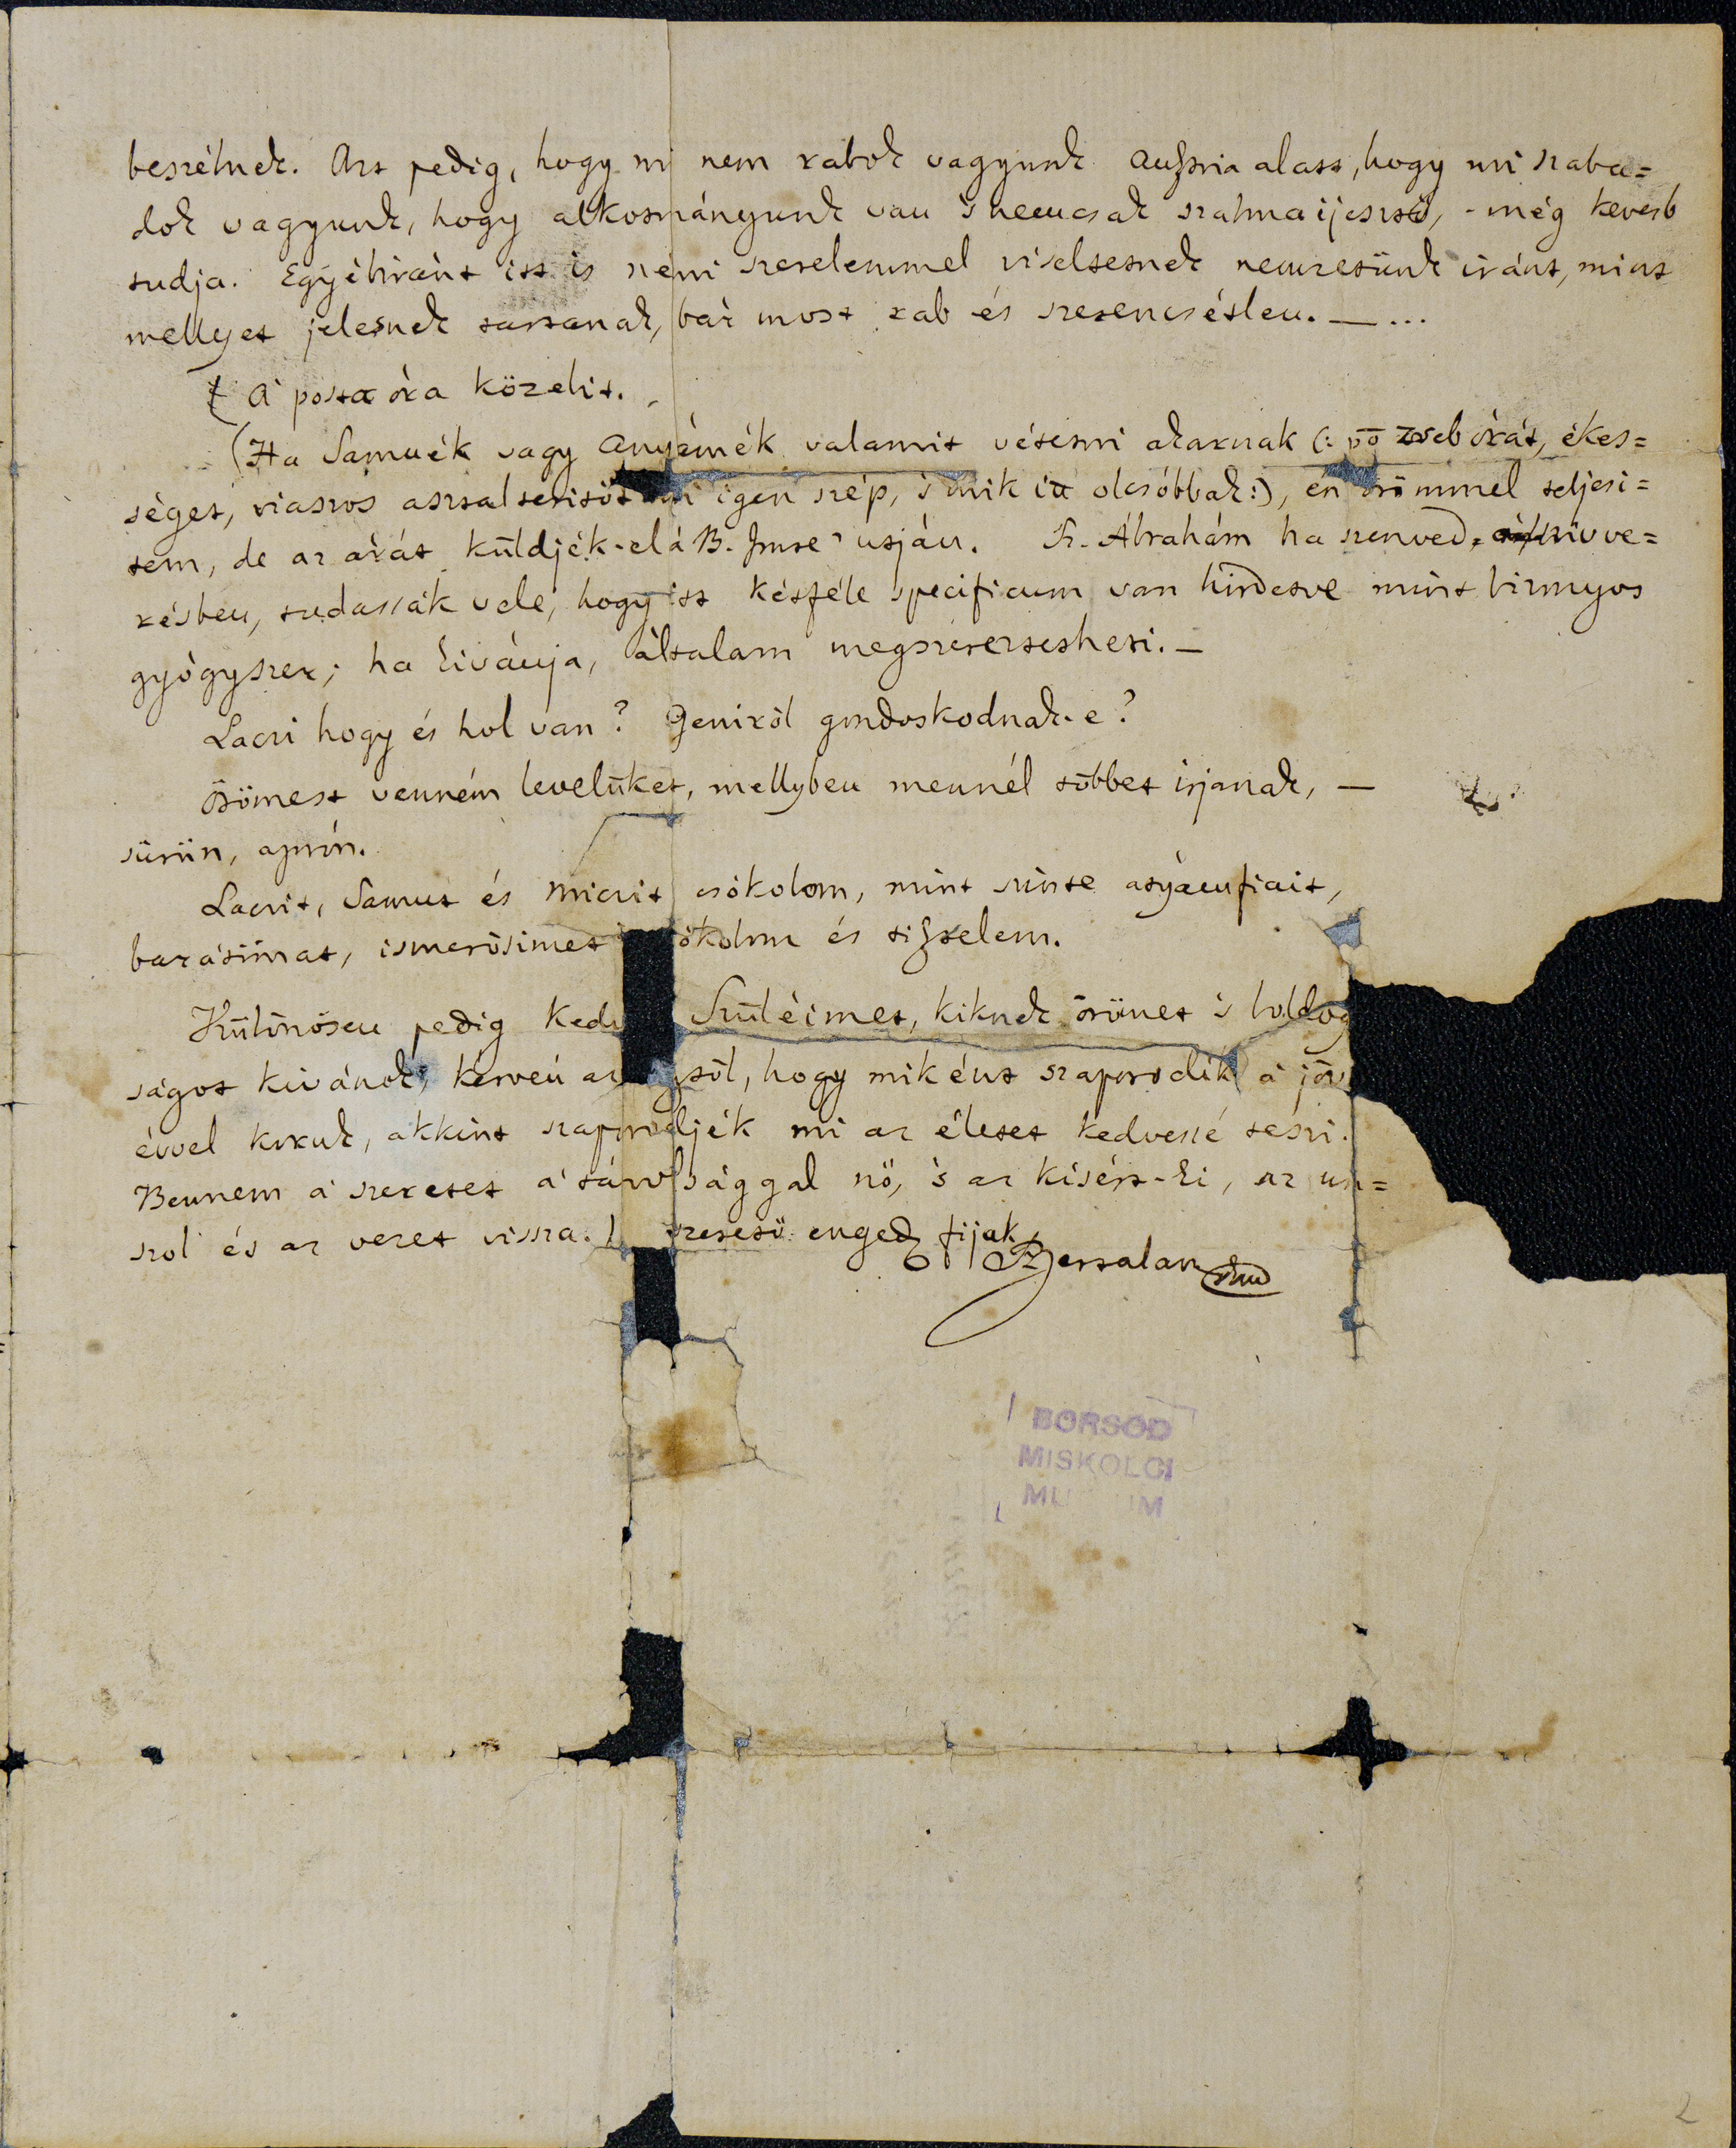 beszélnek. Azt pedig, hogy mi nem rabok vagyunk Austria alatt, hogy mi szaba=
dok vagyunk, hogy alkotmányunk van 's nemcsak szalma ijesztő, - még kevesb
tudja. Egyébiránt itt is némi szerelemmel viseltetnek nemzetünk iránt, mint
mellyet jelesnek tartanak, bár most rab és szerencsétlen. — ...
A' posta óra közelit.
(Ha Samuék vagy Anyámék valamit vétetni akarnak (: női zsebórát, ékes=
séget, viaszos asztalteritőt mi igen szép, 's mik itt olcsóbbak :), én örömmel teljesi=
tem, de az árát küldjék-el a' B. Imre' utján. Sz. Ábrahám ha szenved szivve=
résben, tudassák vele, hogy itt kétféle specificum van hirdetve mint bizonyos
gyógyszer; ha kivánja, általam megszereztetheti. —
Laczi hogy és hol van? Geniről gondoskodnak-e?
Örömest venném levelüket, mellyben mennél többet irjanak, —
sürün, aprón.
Laczit, Samut és Miczit csókolom, mint szinte atyámfiait,
barátimat, ismerősimet ókolom és tisztelem.
Különösen pedig kedv Szüléimet, kiknek örömet 's boldog
ságot kivánok, kérvén az égtől, hogy miként szaporodik a' jöv
évvel koruk, akkint szaporodjék mi az életet kedvessé teszi.
Bennem a' szeretet a' távolsággal nő, 's az kisért-ki, az un=
szol és az vezet vissza. szerető enged fijok
Bertalan
BORSOD
MISKOLCI
MU UM
2